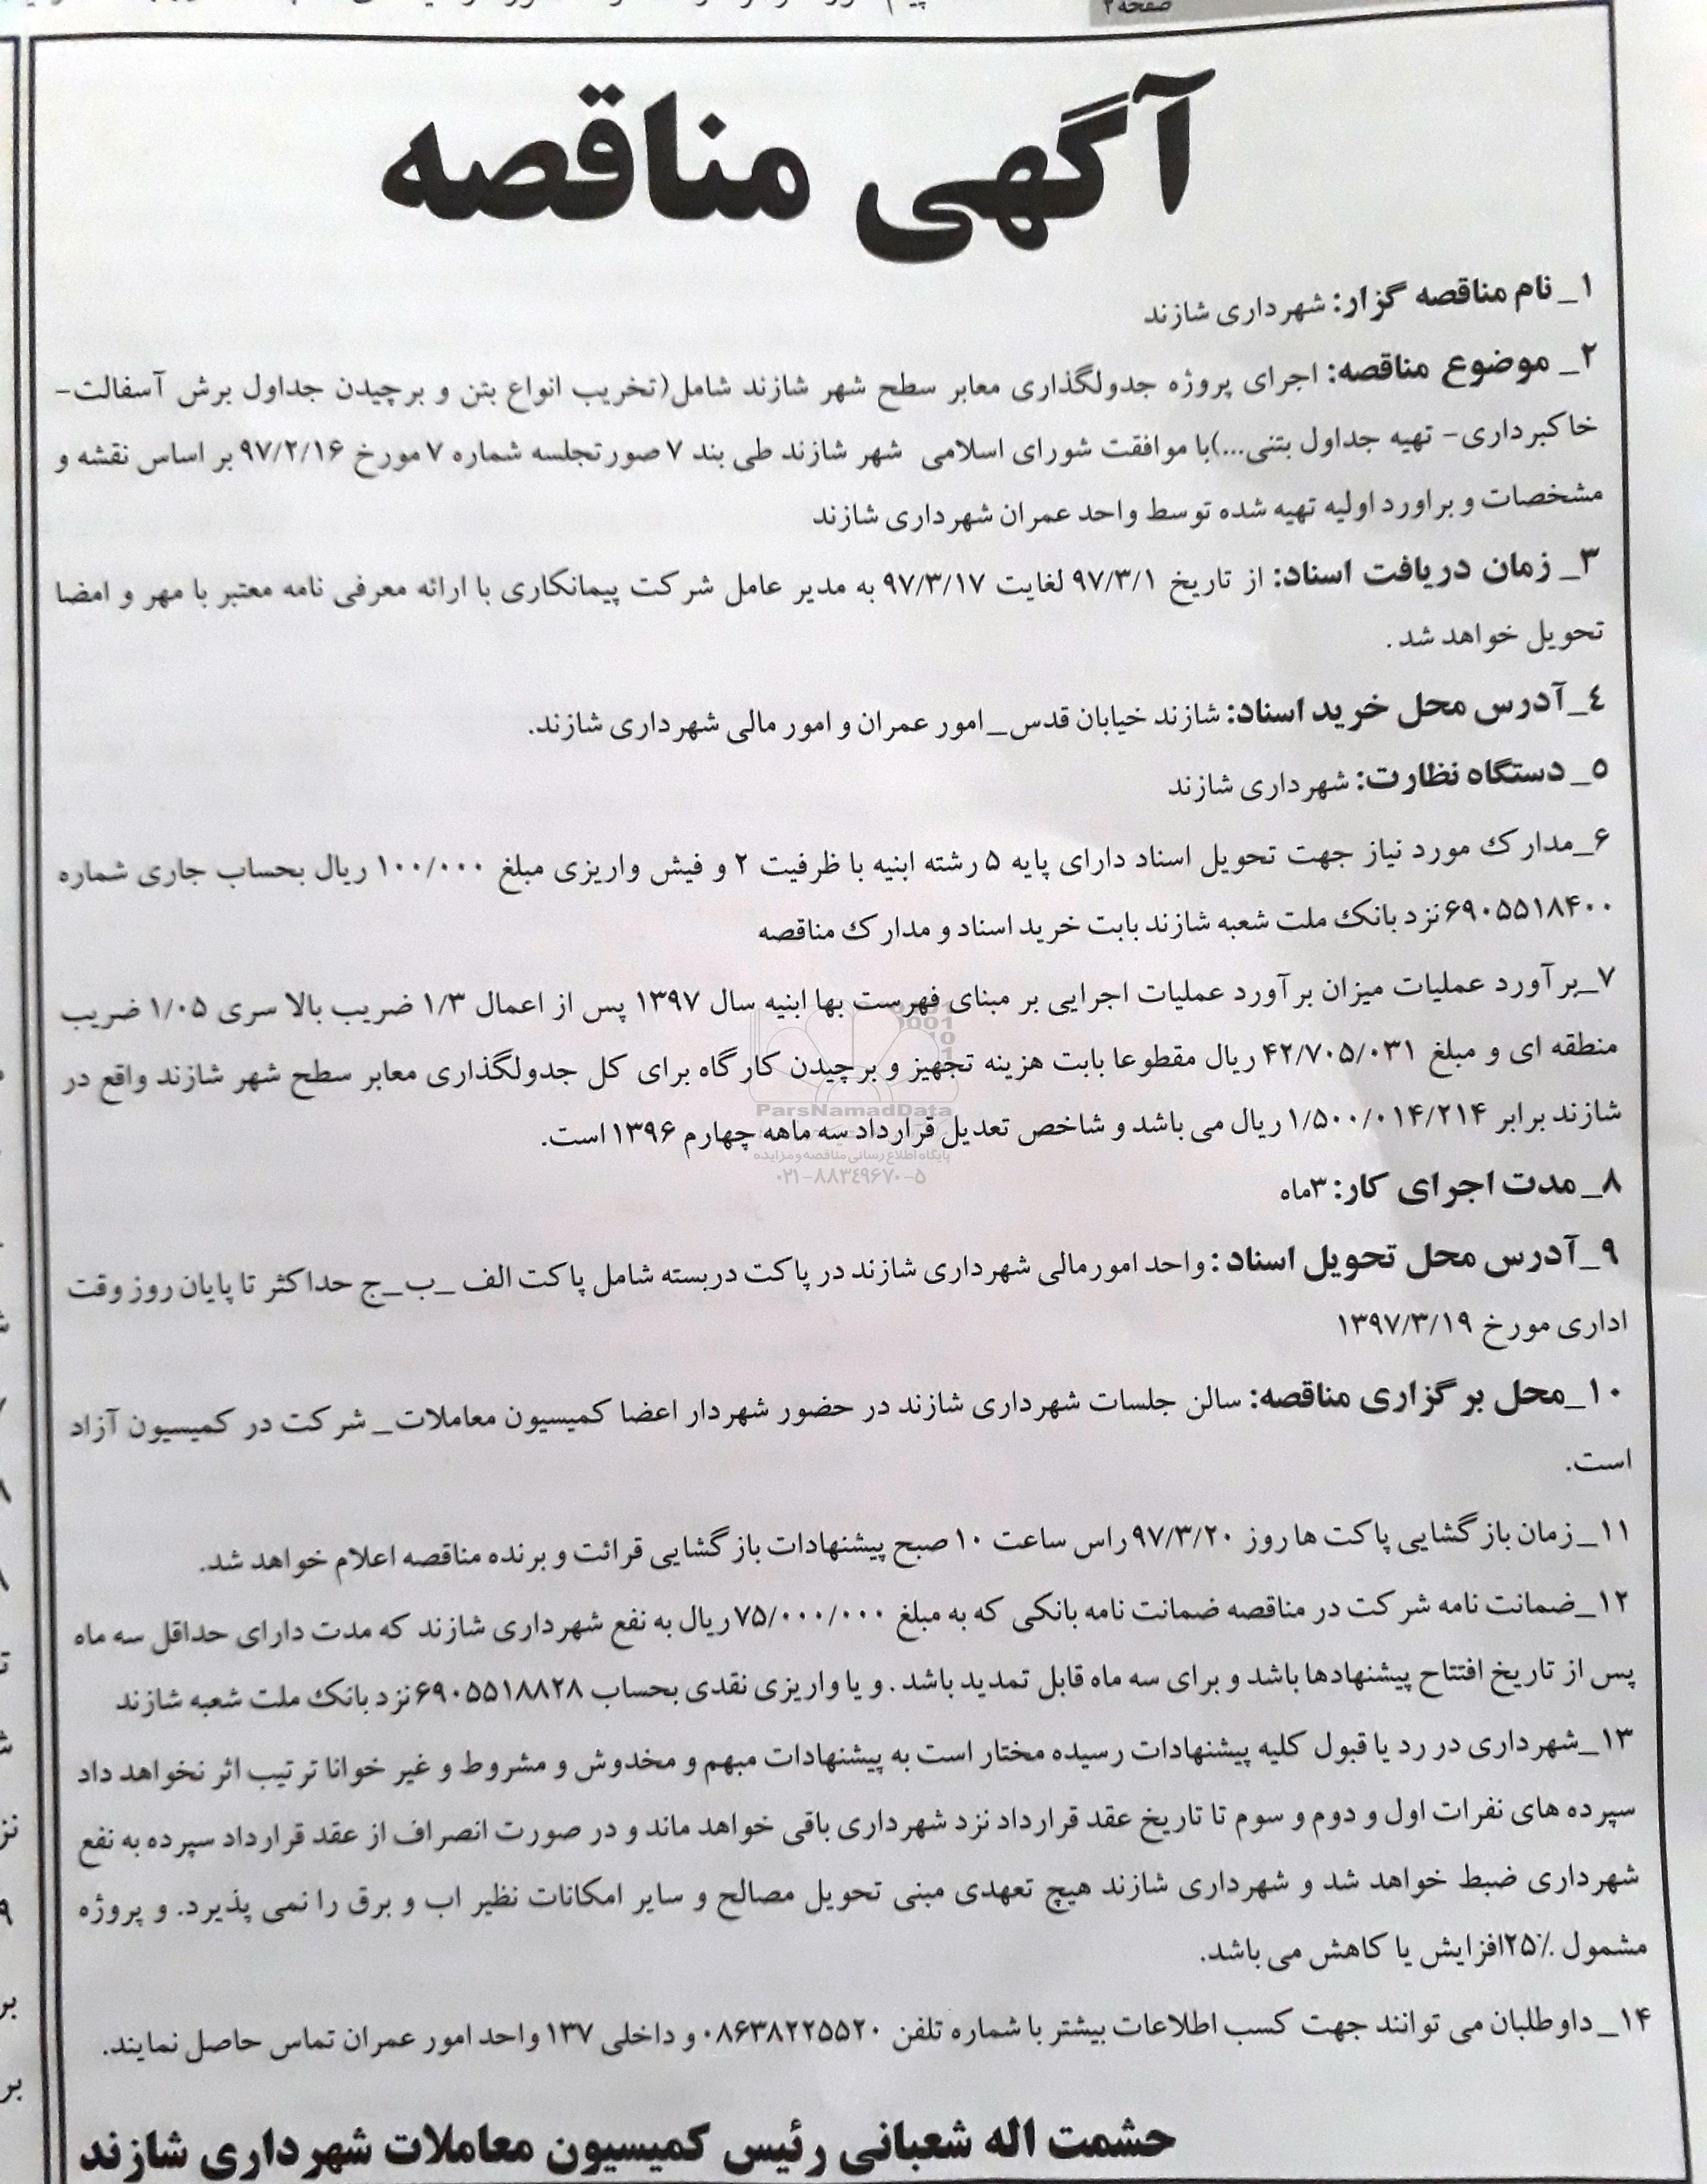 صفحه ۲
آگهی مناقصه
۱_ نام مناقصه گزار: شهرداری شازند
۲_ موضوع مناقصه: اجرای پروژه جدولگذاری معابر سطح شهر شازند شامل(تخریب انواع بتن و برچیدن جداول برش آسفالت-
خاکبرداری- تهیه جداول بتنی...)با موافقت شورای اسلامی شهر شازند طی بند ۷ صورتجلسه شماره ۷ مورخ ۹۷/۲/۱۶ بر اساس نقشه و
مشخصات و براورد اولیه تهیه شده توسط واحد عمران شهرداری شازند
۳_ زمان دریافت اسناد: از تاریخ ۹۷/۳/۱ لغایت ۹۷/۳/۱۷ به مدیر عامل شرکت پیمانکاری با ارائه معرفی نامه معتبر با مهر و امضا
تحویل خواهد شد.
٤_آدرس محل خرید اسناد: شازند خیابان قدس_امور عمران و امور مالی شهرداری شازند.
۵_ دستگاه نظارت: شهرداری شازند
۶_مدارک مورد نیاز جهت تحویل اسناد دارای پایه ۵ رشته ابنیه با ظرفیت ۲ و فیش واریزی مبلغ ۱۰۰/۰۰۰ ریال بحساب جاری شماره
۶۹۰۵۵۱۸۴۰۰نزد بانک ملت شعبه شازند بابت خرید اسناد و مدارک مناقصه
۷_برآورد عملیات میزان برآورد عملیات اجرایی بر مبنای فهرست بها ابنیه سال ۱۳۹۷ پس از اعمال ۱/۳ ضریب بالا سری ۱/۰۵ ضریب
منطقه ای و مبلغ ۴۲/۷۰۵/۰۳۱ ریال مقطوعا بابت هزینه تجهیز و برچیدن کارگاه برای کل جدولگذاری معابر سطح شهر شازند واقع در
شازند برابر ۱/۵۰۰/۰۱۴/۲۱۴ریال می باشد و شاخص تعدیل قرارداد سه ماهه چهارم ۱۳۹۶است.
ParsNamadData
پایگاه اطلاع رسانی مناقصه و مزایده
۰۲۱-۸۸۳۴۹۶۷۰-۵
۸_ مدت اجرای کار: ۳ماه
۹_آدرس محل تحویل اسناد: واحد امورمالی شهرداری شازند در پاکت دربسته شامل پاکت الف_ب_ج حداکثر تا پایان روز وقت
اداری مورخ ۱۳۹۷/۳/۱۹
۱۰_محل برگزاری مناقصه: سالن جلسات شهرداری شازند در حضور شهردار اعضا کمیسیون معاملات_ شرکت در کمیسیون آزاد
است.
۱۱_زمان بازگشایی پاکت ها روز ۹۷/۳/۲۰راس ساعت ۱۰ صبح پیشنهادات بازگشایی قرائت و برنده مناقصه اعلام خواهد شد.
۱۲_ضمانت نامه شرکت در مناقصه ضمانت نامه بانکی که به مبلغ ۷۵/۰۰۰/۰۰۰ریال به نفع شهرداری شازند که مدت دارای حداقل سه ماه
پس از تاریخ افتتاح پیشنهادها باشد و برای سه ماه قابل تمدید باشد. و یا واریزی نقدی بحساب ۶۹۰۵۵۱۸۸۲۸نزد بانک ملت شعبه شازند
۱۳_شهرداری در رد یا قبول کلیه پیشنهادات رسیده مختار است به پیشنهادات مبهم و مخدوش و مشروط و غیر خوانا ترتیب اثر نخواهد داد
سپرده های نفرات اول و دوم و سوم تا تاریخ عقد قرارداد نزد شهرداری باقی خواهد ماند و در صورت انصراف از عقد قرارداد سپرده به نفع
شهرداری ضبط خواهد شد و شهرداری شازند هیچ تعهدی مبنی تحویل مصالح و سایر امکانات نظیر اب و برق را نمی پذیرد. و پروژه
مشمول ۲۵٪افزایش یا کاهش می باشد.
۱۴_ داوطلبان می توانند جهت کسب اطلاعات بیشتر با شماره تلفن ۰۸۶۳۸۲۲۵۵۲۰و داخلی ۱۳۷ واحد امور عمران تماس حاصل نمایند.
حشمت اله شعبانی رئیس کمیسیون معاملات شهرداری شازند